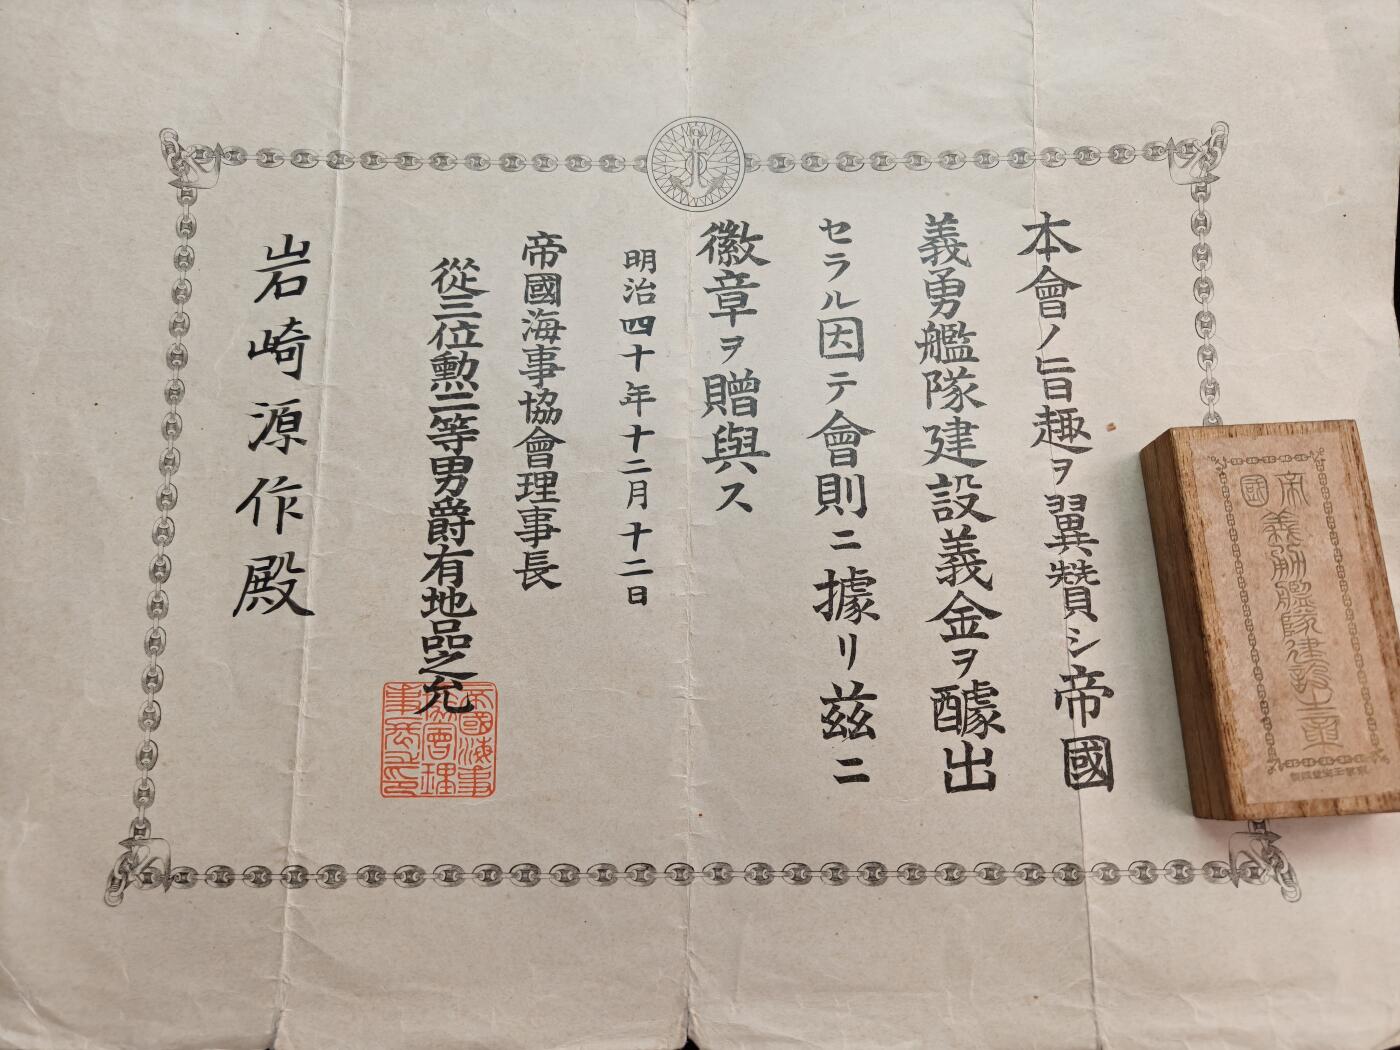 本會ノ旨趣ヲ翼贊シ帝國
義勇艦隊建設義金ヲ醵出
セラル因テ會則ニ據リ茲ニ
徽章ヲ贈與ス
明治四十年十二月十二日
帝國海事協會理事長
從三位勲二等男爵有地品之允
帝國海事
協會理
事長之印
岩崎源作殿
帝國
義勇艦隊建設章